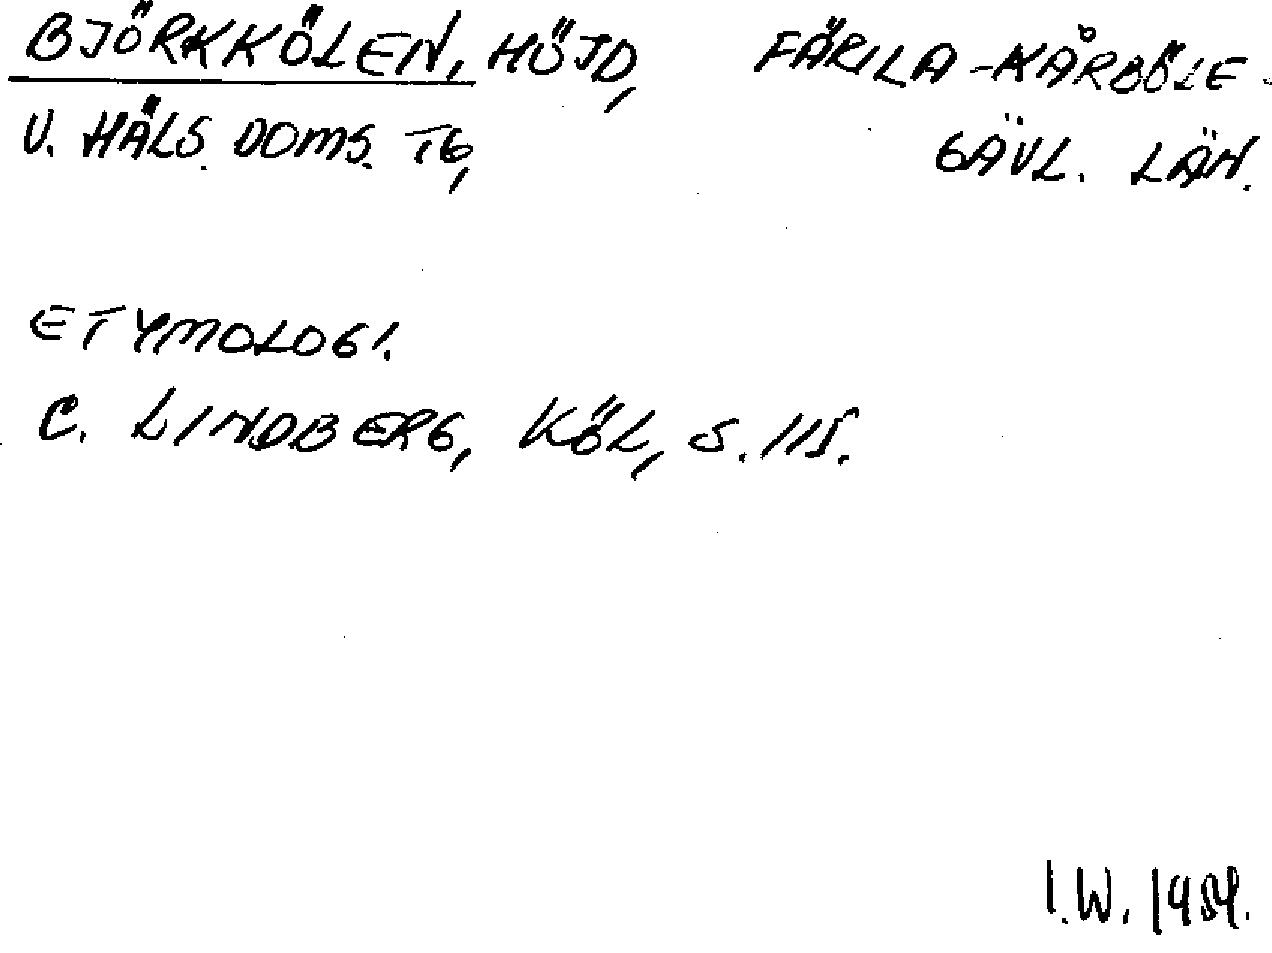 BJÖRKKÖLEN, HÖJD, FÄRILA-KÅRBÖLE
V. HÄLS. DOMS. TG, GÄVL. LÄN.
ETYMOLOGI.
C. LINDBERG, KÖL, S. 115.
I.W. 1984.